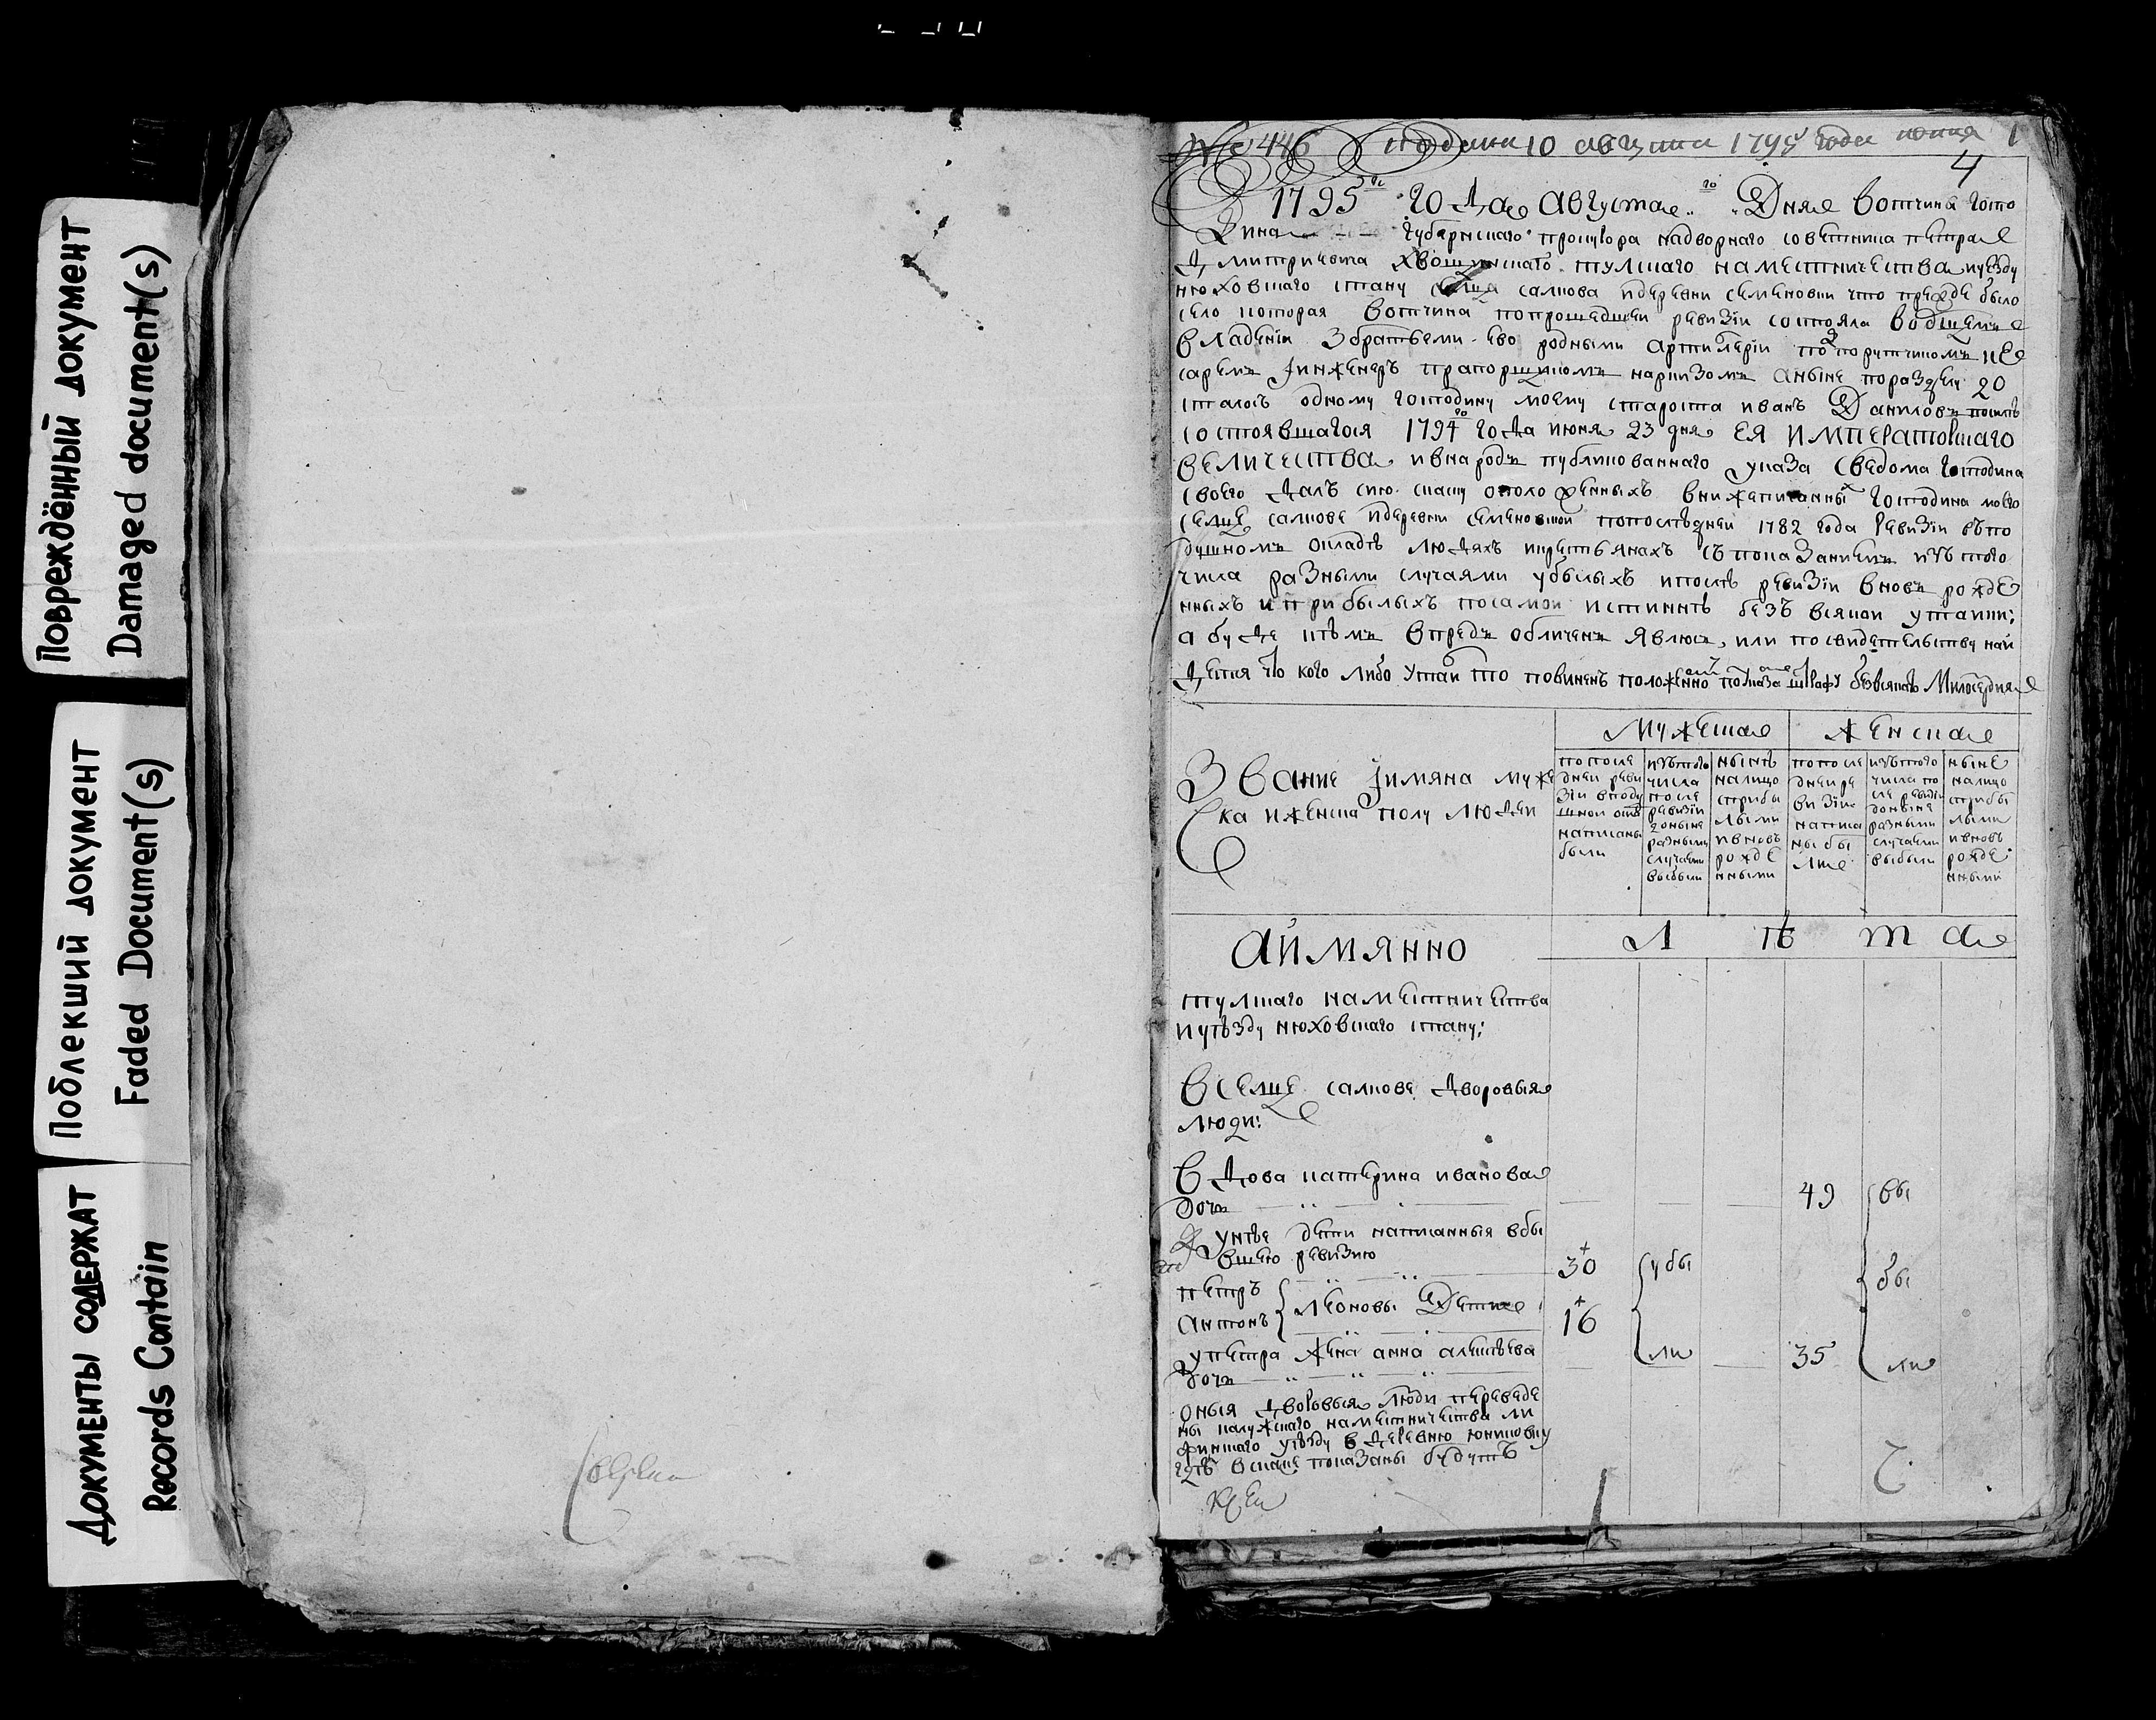 Повреждённый документ
Damaged document(s)
Поблекший документ
Faded Document(s)
Документы содержат
Records Contain
№ 446 подана 10 августа 1795 года 1
4
1795го года августа го Дня вотчины госпо
дина губернскаго прокурора надворнаго советника петра
дмитриевича хвощинскаго тулскаго наместничества и уезду
нюховскаго стану селца салкова и деревни семеновки что прежде было
село которая вотчина по прошедшеи ревизiи состояла вобщемъ
владенiи збратьеми ево родными артилерiи подпорутчикомъ ке
саремъ iинженеръ прапорщикомъ наркизомъ аныне поразделу до
сталось одному господину моему староста иванъ Даниловъ посилѣ
состоявшагося 1794го года июня 23 дня ЕЯ ИМПЕРАТОРСКАГО
ВЕЛИЧЕСТВА ивнародъ публикованнаго указа сведома господина
своего далъ сию скаску оположенныхъ внижеписанныхъ господина моего
селце салкове идеревни семеновкой попоследнеи 1782 года ревизiи въпо
душномъ окладѣ людяхъ икрестьянахъ съпоказаниемъ изътого
числа разными случаями убылыхъ ипослѣ ревизiи вновь рожде
нныхъ иприбылыхъ посамои истиннѣ безъ всякои утаики;
а буде кѣмъ впредь обличенъ явлюсь, или посвидетельству наи
дется что кого либо утаи то повиненъ положенно поуказа штрафу безвсякаго Милосердия
Звание iимяна муже
ска иженска полу людеи
Мужеска
Женска
попосле
днеи реви
зiи вподу
шнои окл
написаны
были
изътого
числа
после
ревизiи
доныне
разными
случаями
выбыли
нынѣ
налицо
сприбы
лыми
ивновь
рожде
нными
попосле
днеи ре
визiи
написа
ны бы
ли
изътого
числа по
сле ревизiи
доныне
разными
случаями
выбыли
ныне
налицо
сприбы
лыми
ивновь
рожде
нными
аимянно
Л ѣ т а
тулскаго наместничества
иуѣзду нюховскаго стану;
Вселце салкове дворовыя
люди:
Вдова катерина иванова
дочь 49 вы
Унее дети написанныя вбы
вшею ревизию
петръ 30 убы бы
антонъ леоновы Дети 16
Упетра жена анна алексѣева
дочь ли 35 ли
оныя дворовыя люди переведе
ны калужскаго наместничества ли
финскаго уѣзду вдеревню
гдѣ вскаске показаны будутъ